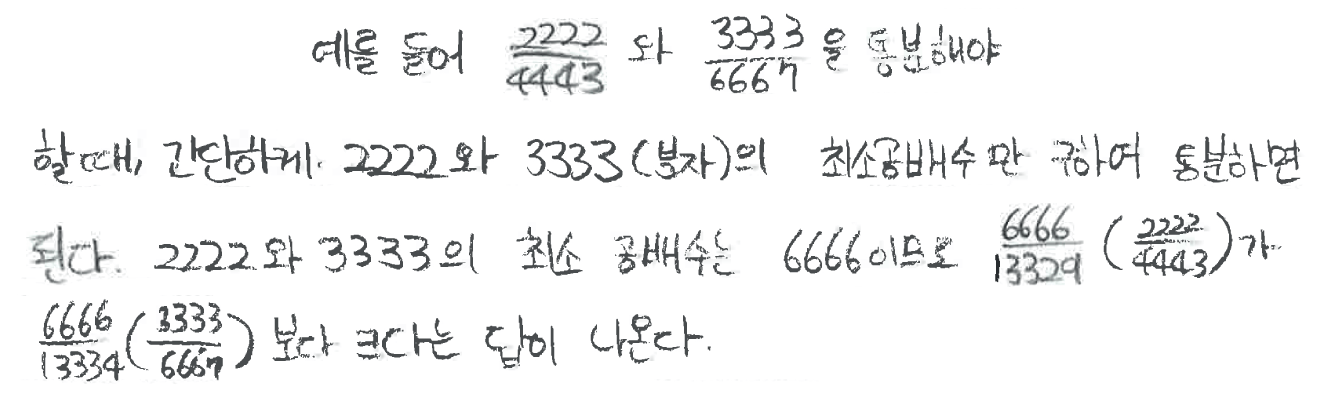 예를 들어 2222/4443 와 3333/6667 을 통분해야
할때, 간단하게. 2222와 3333(분자)의 최소공배수만 구하여 통분하면
된다. 2222와 3333의 최소 공배수는 6666이므로 6666/13329 (2222/4443)가
6666/13334 (3333/6667) 보다 크다는 답이 나온다.